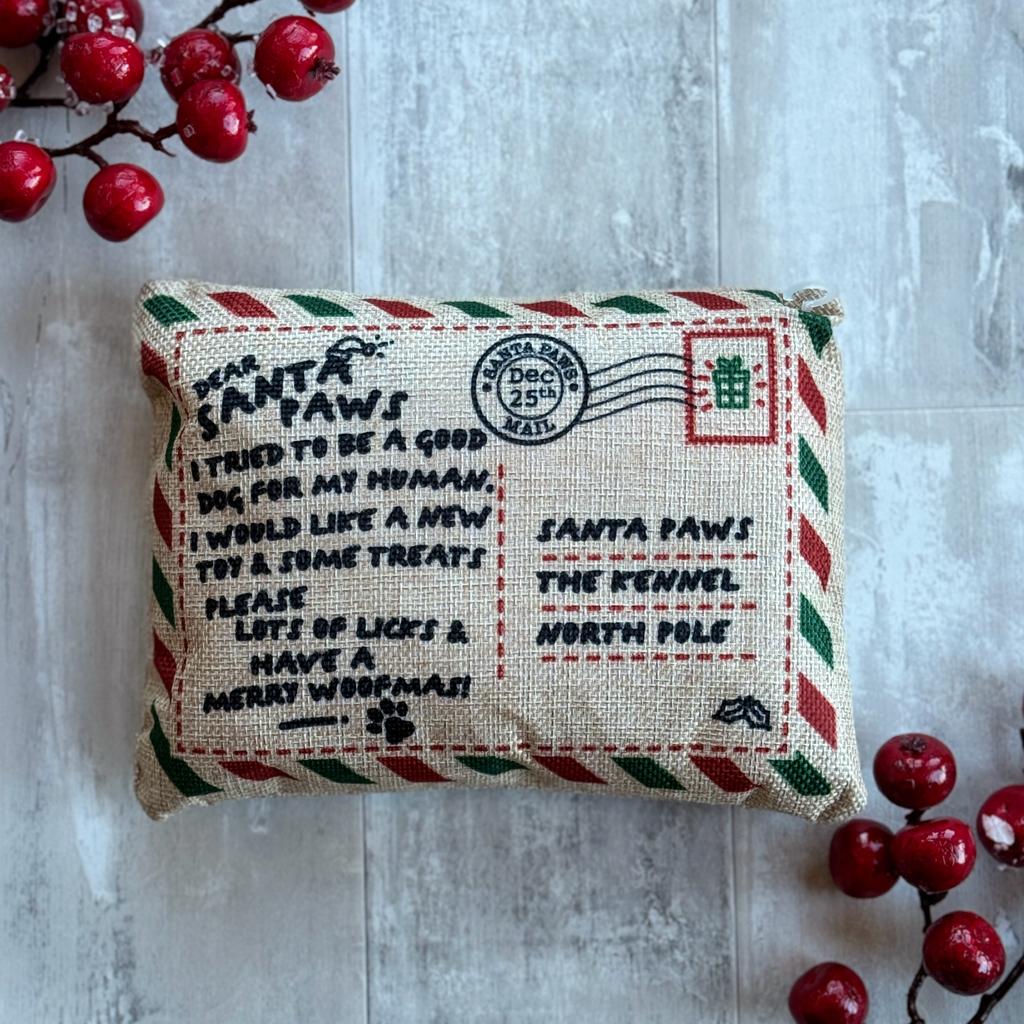 DEAR
SANTA
PAWS
I TRIED TO BE A GOOD
DOG FOR MY HUMAN.
I WOULD LIKE A NEW
TOY & SOME TREATS
PLEASE
LOTS OF LICKS &
HAVE A
MERRY WOOFMAS!
SANTA PAWS
Dec
25th
MAIL
SANTA PAWS
THE KENNEL
NORTH POLE